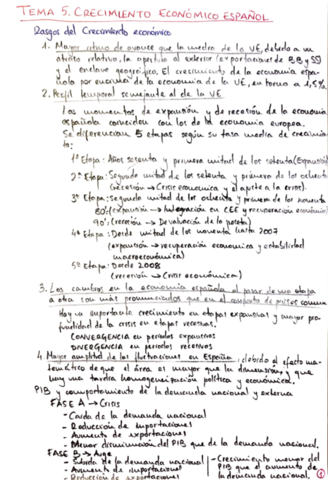 TEMA 5. CRECIMIENTO ECONÓMICO ESPAÑOL
Rasgos del Crecimiento económico
1. Mayor ritmo de avance que la media de la UE, debido a su
atraso relativo, la apertura al exterior (exportaciones de BB y SS)
y el enclave geográfico. El crecimiento de la economía espa-
ñola por encima de la economía de la UE, en torno a 1,5%.
2. Perfil temporal semejante al de la UE
Los momentos de expansión y de recesión de la economía
española coinciden con los de la economía europea.
Se diferencian 5 etapas según su tasa media de crecimien-
to:
1ª Etapa: Años sesenta y primera mitad de los setenta (Expansión)
2ª Etapa: Segunda mitad de los setenta y primeros de los ochenta
(recesión → Crisis económica y el ajuste a la crisis)
3ª Etapa: Segunda mitad de los ochenta y primera de los noventa
80' (expansión → Integración en CEE y recuperación económica)
90' (recesión → Devaluación de la peseta)
4ª Etapa: Desde mitad de los noventa hasta 2007
(expansión → recuperación económica y estabilidad
macroeconómica)
5ª Etapa: Desde 2008
(recesión → Crisis económica)
3. Los cambios en la economía española al pasar de una etapa
a otra son más pronunciados que en el conjunto de países
Hay un importante crecimiento en etapas expansivas y mayor pro-
fundidad de la crisis en etapas recesivas.
CONVERGENCIA en períodos expansivos
DIVERGENCIA en períodos recesivos
4. Mayor amplitud de las fluctuaciones en España: debido al efecto ma-
temático de que el área es mayor que la dimensión y que
hay una tardía homogeneización política y económica.
PIB y comportamiento de la demanda nacional y externa
FASE A → Crisis
- Caída de la demanda nacional
- Reducción de importaciones
- Aumento de exportaciones
- Menor disminución del PIB que de la demanda nacional.
FASE B → Auge
- Subida de la demanda nacional
- Aumento de importaciones
- Reducción de exportaciones
- Crecimiento menor del
PIB que el aumento de
la demanda nacional.
1